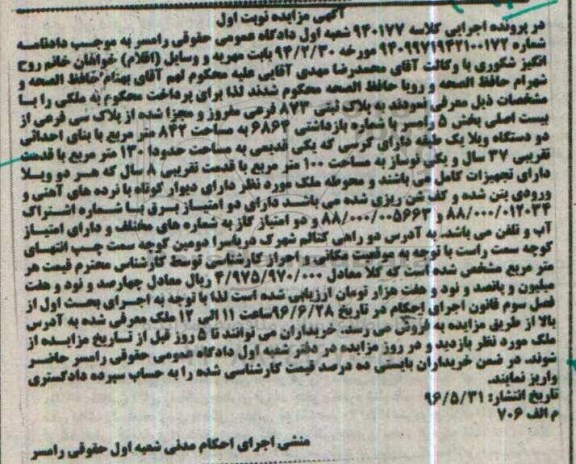 آگهی مزایده نوبت اول
در پرونده اجرایی کلاسه ۹۴۰۱۷۷ شعبه اول دادگاه عمومی حقوقی رامسر به موجب دادنامه
شماره ۹۴۰۹۹۷۱۹۴۲۱۰۰۱۷۲ مورخه ۹۴/۲/۳۰ بابت مهریه و وسایل (اقلام) خواهان خانم روح
انگیز شکوری با وکالت آقای محمدرضا مهدی آقایی علیه محکوم لهم آقای بهنام حافظ الصحه و
شهرام حافظ الصحه و رویا حافظ الصحه محکوم شدند لذا برای پرداخت محکوم به ملکی را با
مشخصات ذیل معرفی نمودند به پلاک ثبتی ۸۷۳ فرعی مفروز و مجزا شده از پلاک سی فرعی از
بیست اصلی بخش ۵ رامسر با شماره بازداشتی ۶۸۶۴ به مساحت ۸۴۲ متر مربع با بنای احداثی
دو دستگاه ویلا یک طبقه دارای کرسی که یکی قدیمی به مساحت حدود ۱۳۰ متر مربع با قدمت
تقریبی ۳۷ سال و یکی نوساز به مساحت ۱۰۰ متر مربع با قدمت تقریبی ۸ سال که هر دو ویلا
دارای تجهیزات کامل می باشند و محوطه ملک مورد نظر دارای دیوار کوتاه با نرده های آهنی و
ورودی بتن شده و کف شن ریزی شده می باشد دارای دو امتیاز برق با شماره اشتراک
۸۸/۰۰۰/۰۱۲۰۳۴ و ۸۸/۰۰۰/۰۰۵۶۶۳ و دو امتیاز گاز به شماره های مختلف و دارای امتیاز
آب و تلفن می باشد. به آدرس دو راهی کتالم شهرک دریاسرا دومین کوچه سمت چپ انتهای
کوچه سمت راست با توجه به موقعیت مکانی و احراز کارشناسی توسط کارشناس محترم قیمت هر
متر مربع مشخص شده است که کلا معادل ۴/۹۷۵/۹۷۰/۰۰۰ ریال معادل چهارصد و نود و هفت
میلیون و پانصد و نود و هفت هزار تومان ارزیابی شده است لذا با توجه به اجرای بحث اول از
فصل سوم قانون اجرای احکام در تاریخ ۹۶/۶/۲۸ ساعت ۱۱ الی ۱۲ ملک معرفی شده به آدرس
بالا از طریق مزایده به فروش می رسد. خریداران می توانند تا ۵ روز قبل از تاریخ مزایده از
ملک مورد نظر بازدید و در روز مزایده در دفتر شعبه اول دادگاه عمومی حقوقی رامسر حاضر
شوند. در ضمن خریداران بایستی ده درصد قیمت کارشناسی شده را به حساب سپرده دادگستری
واریز نمایند.
تاریخ انتشار: ۹۶/۵/۳۱
م الف ۷۰۶
منشی اجرای احکام مدنی شعبه اول حقوقی رامسر